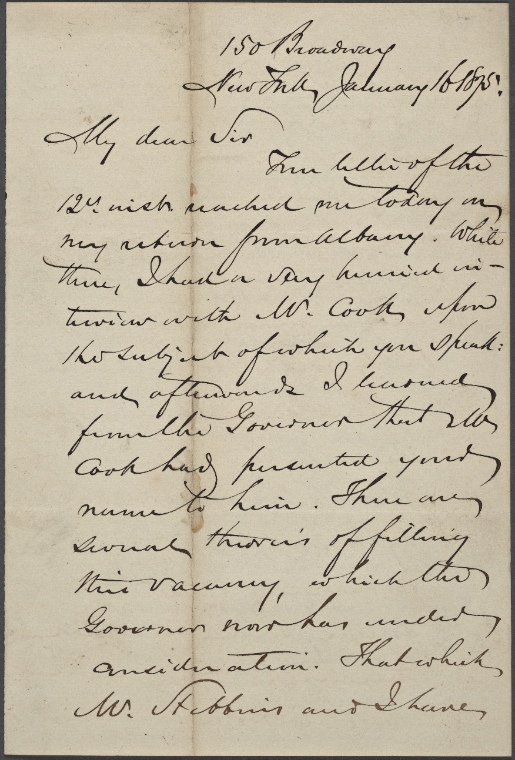 150 Broadway
New York, January 16 1875.
My dear Sir
Your letter of the
12th inst. reached me today on
my return from Albany. While
there, I had a very hurried in-
terview with Mr. Cook, upon
the subject of which you speak:
and afterwards I learned
from the Governor that Mr
Cook had presented your
name to him. There are
several theories of filling
this vacancy, which the
Governor now has under
consideration. That which
Mr. Stebbins and I have